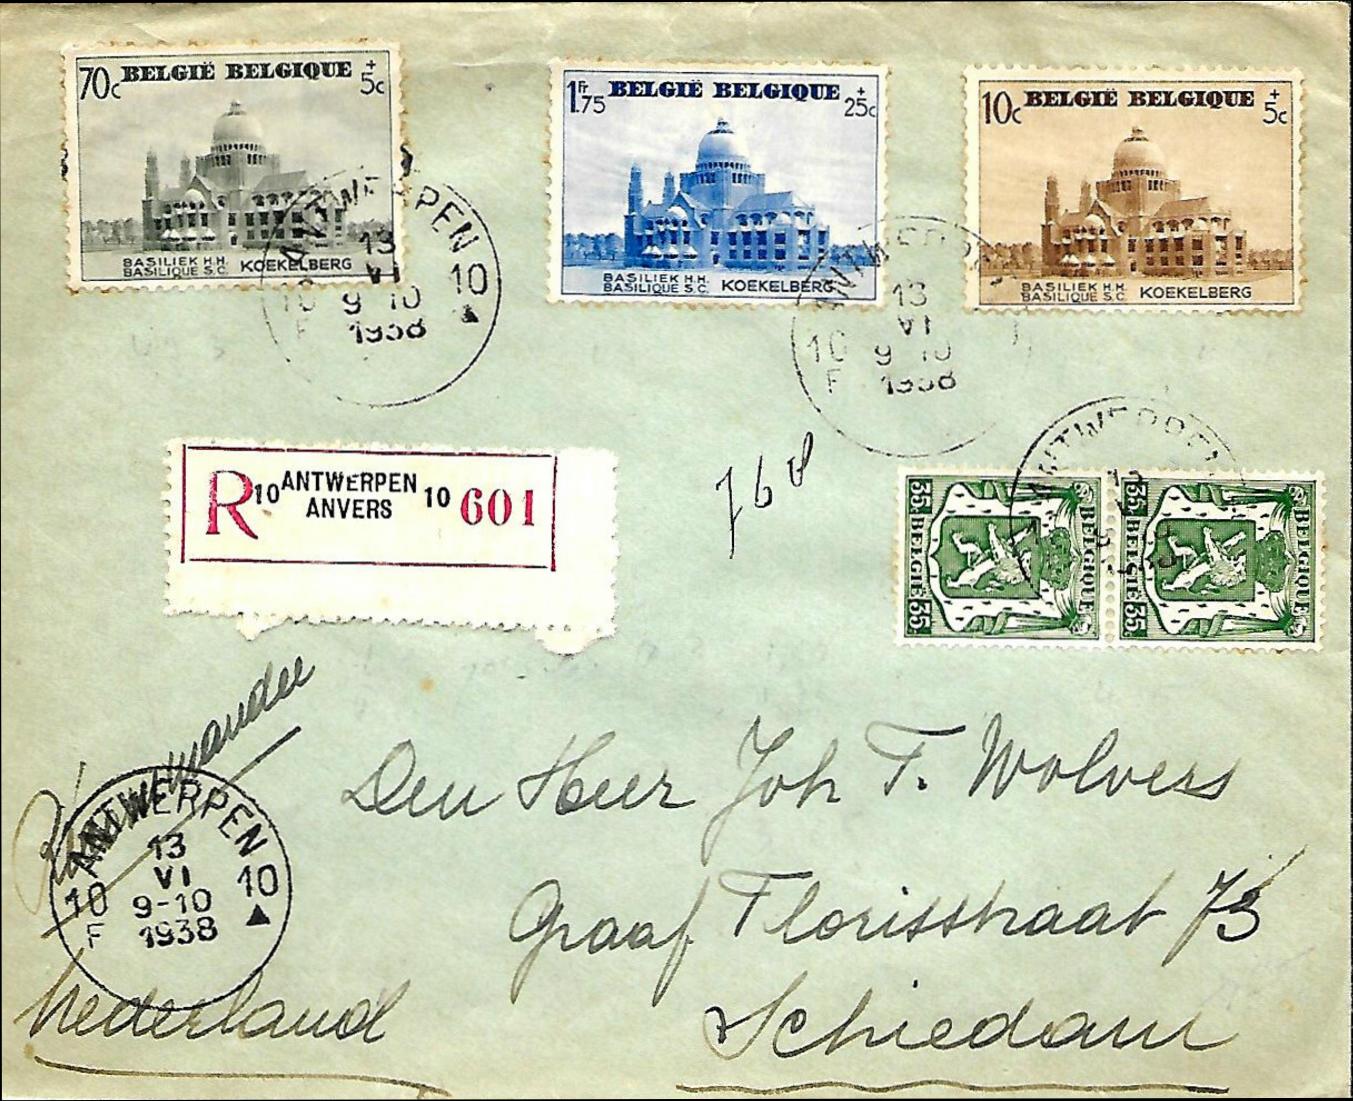 70c BELGIË BELGIQUE + 5c
BASILIEK H.H.
BASILIQUE S.C. KOEKELBERG
1Fr.75 BELGIË BELGIQUE + 25c
BASILIEK H.H.
BASILIQUE S.C. KOEKELBERG
10c BELGIË BELGIQUE + 5c
BASILIEK H.H.
BASILIQUE S.C. KOEKELBERG
ANTWERPEN
13
VI
10 9-10 10
F 1938
ANTWERPEN
13
VI
10 9-10
F 1938
R 10 ANTWERPEN 10 601
ANVERS
ANTWERPEN
35c BELGIQUE
BELGIË 35c
35c BELGIQUE
BELGIË 35c
ANTWERPEN
13
VI
10 9-10 10
F 1938
Den Heer Joh F. Wolvers
Graaf Florisstraat 73
Schiedam
Nederland